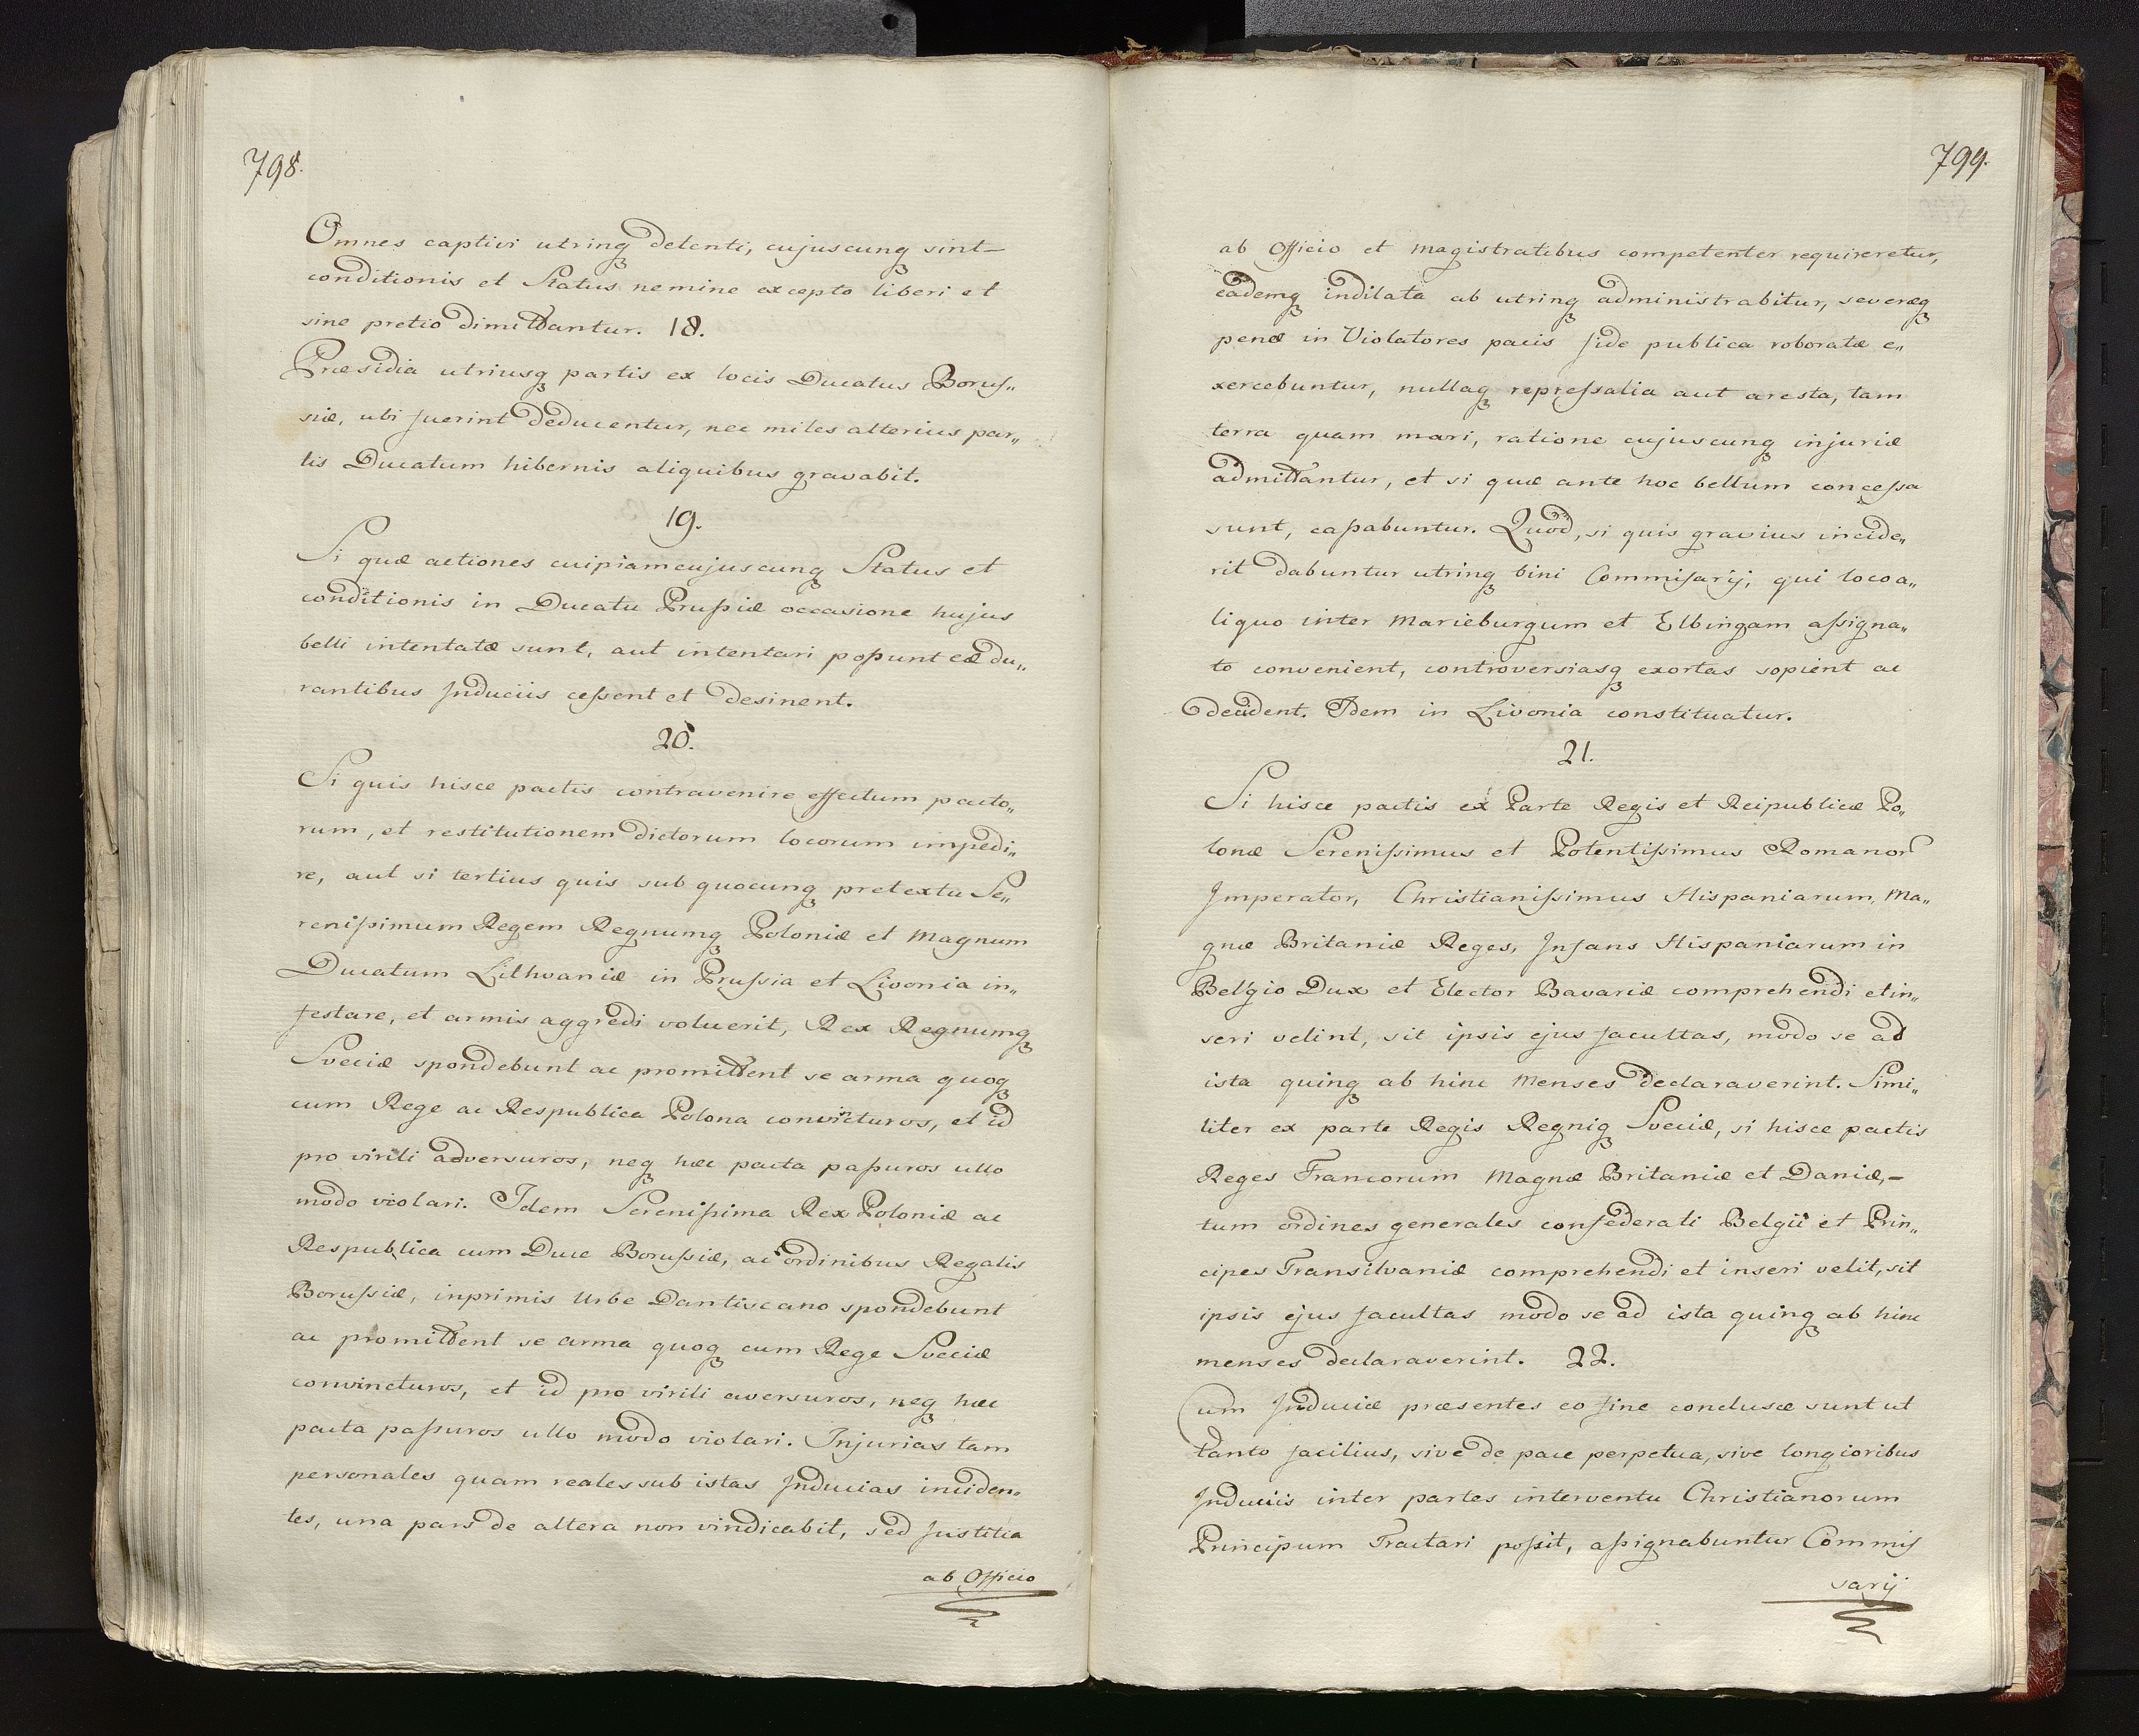 798.
Omnes captivi utrinq detenti, cujuscunq sint
conditionis et Status nemine excepto liberi et
sine pretio dimittantur. 18.
Præsidia utriusq partis ex locis Ducatus Borus„
siæ, ubi fuerint deducentur, nec miles alterius par„
tis Ducatum hibernis aliquibus gravabit.
19.
Si quæ actiones cuipiam cujuscunq Status et
conditionis in Ducatu Prussiæ occasione hujus
belli intentatæ sunt, aut intentari possunt eæ du„
rantibus Induciis cessent et desinent.
20.
Si quis hisce pactis contravenire effectum pacto„
rum, et restitutionem dictorum locorum impedi„
re, aut si tertius quis sub quocunq pretextu Se„
renissimum Regem Regnumq Poloniæ et Magnum
Ducatum Lithvaniæ in Prussia et Livonia in„
festare, et armis aggredi voluerit, Rex Regnumq
Sveciæ spondebunt ac promittent se arma quoq
cum Rege ac Respublica Polona convincturos, et id
pro virili adversuros, neq hæc pacta passuros ullo
modo violari. Idem Serenissima Rex Poloniæ ac
Respublica cum Duce Borussiæ, ac ordinibus Regalis
Borussiæ, inprimis Urbe Dantiscano spondebunt
ac promittent se arma quoq cum Rege Sveciæ
convincturos, et id pro virili aversuros, neq hæc
pacta passuros ullo modo violari. Injurias tam
personales quam reales sub istas Inducias inciden„
tes, una pars de altera non vindicabit, sed Justitia
ab Officio
799.
ab Officio et Magistratibus competenter requireretur,
eademq indilata ab utrinq administrabitur, severæq
penæ in Violatores pacis fide publica roboratæ e„
xercebuntur, nullaq repressalia aut aresta, tam
terra quam mari, ratione cujuscunq injuriæ
admittantur, et si quæ ante hoc bellum concessa
sunt, cassabuntur. Quod, si quis gravius incide„
rit dabuntur utrinq bini Commissarij, qui loco a„
liquo inter Marieburgum et Elbingam assigna„
to convenient, controversiasq exortas sopient ac
decident. Idem in Livonia constituatur.
21.
Si hisce pactis ex Parte Regis et Reipublicæ Po„
lonæ Serenissimus et Potentissimus Romanor
Imperator, Christianissimus Hispaniarum, Ma„
gnæ Britaniæ Reges, Infans Hispaniarum in
Belgio Dux et Elector Bavariæ comprehendi et in„
seri velint, sit ipsis ejus facultas, modo se ad
ista quinq ab hinc Menses declaraverint. Simi„
liter ex parte Regis Regniq Sveciæ, si hisce pactis
Reges Francorum Magnæ Britaniæ et Daniæ,
tum ordines generales confederati Belgii et Prin„
cipes Transilvaniæ comprehendi et inseri velit, sit
ipsis ejus facultas modo se ad ista quinq ab hinc
menses declaraverint. 22.
Cum Induciæ præsentes eo fine conclusæ sunt ut
tanto facilius, sive de pace perpetua, sive longioribus
Induciis inter partes interventu Christianorum
Principum Tractari possit, assignabuntur Commis
sarij